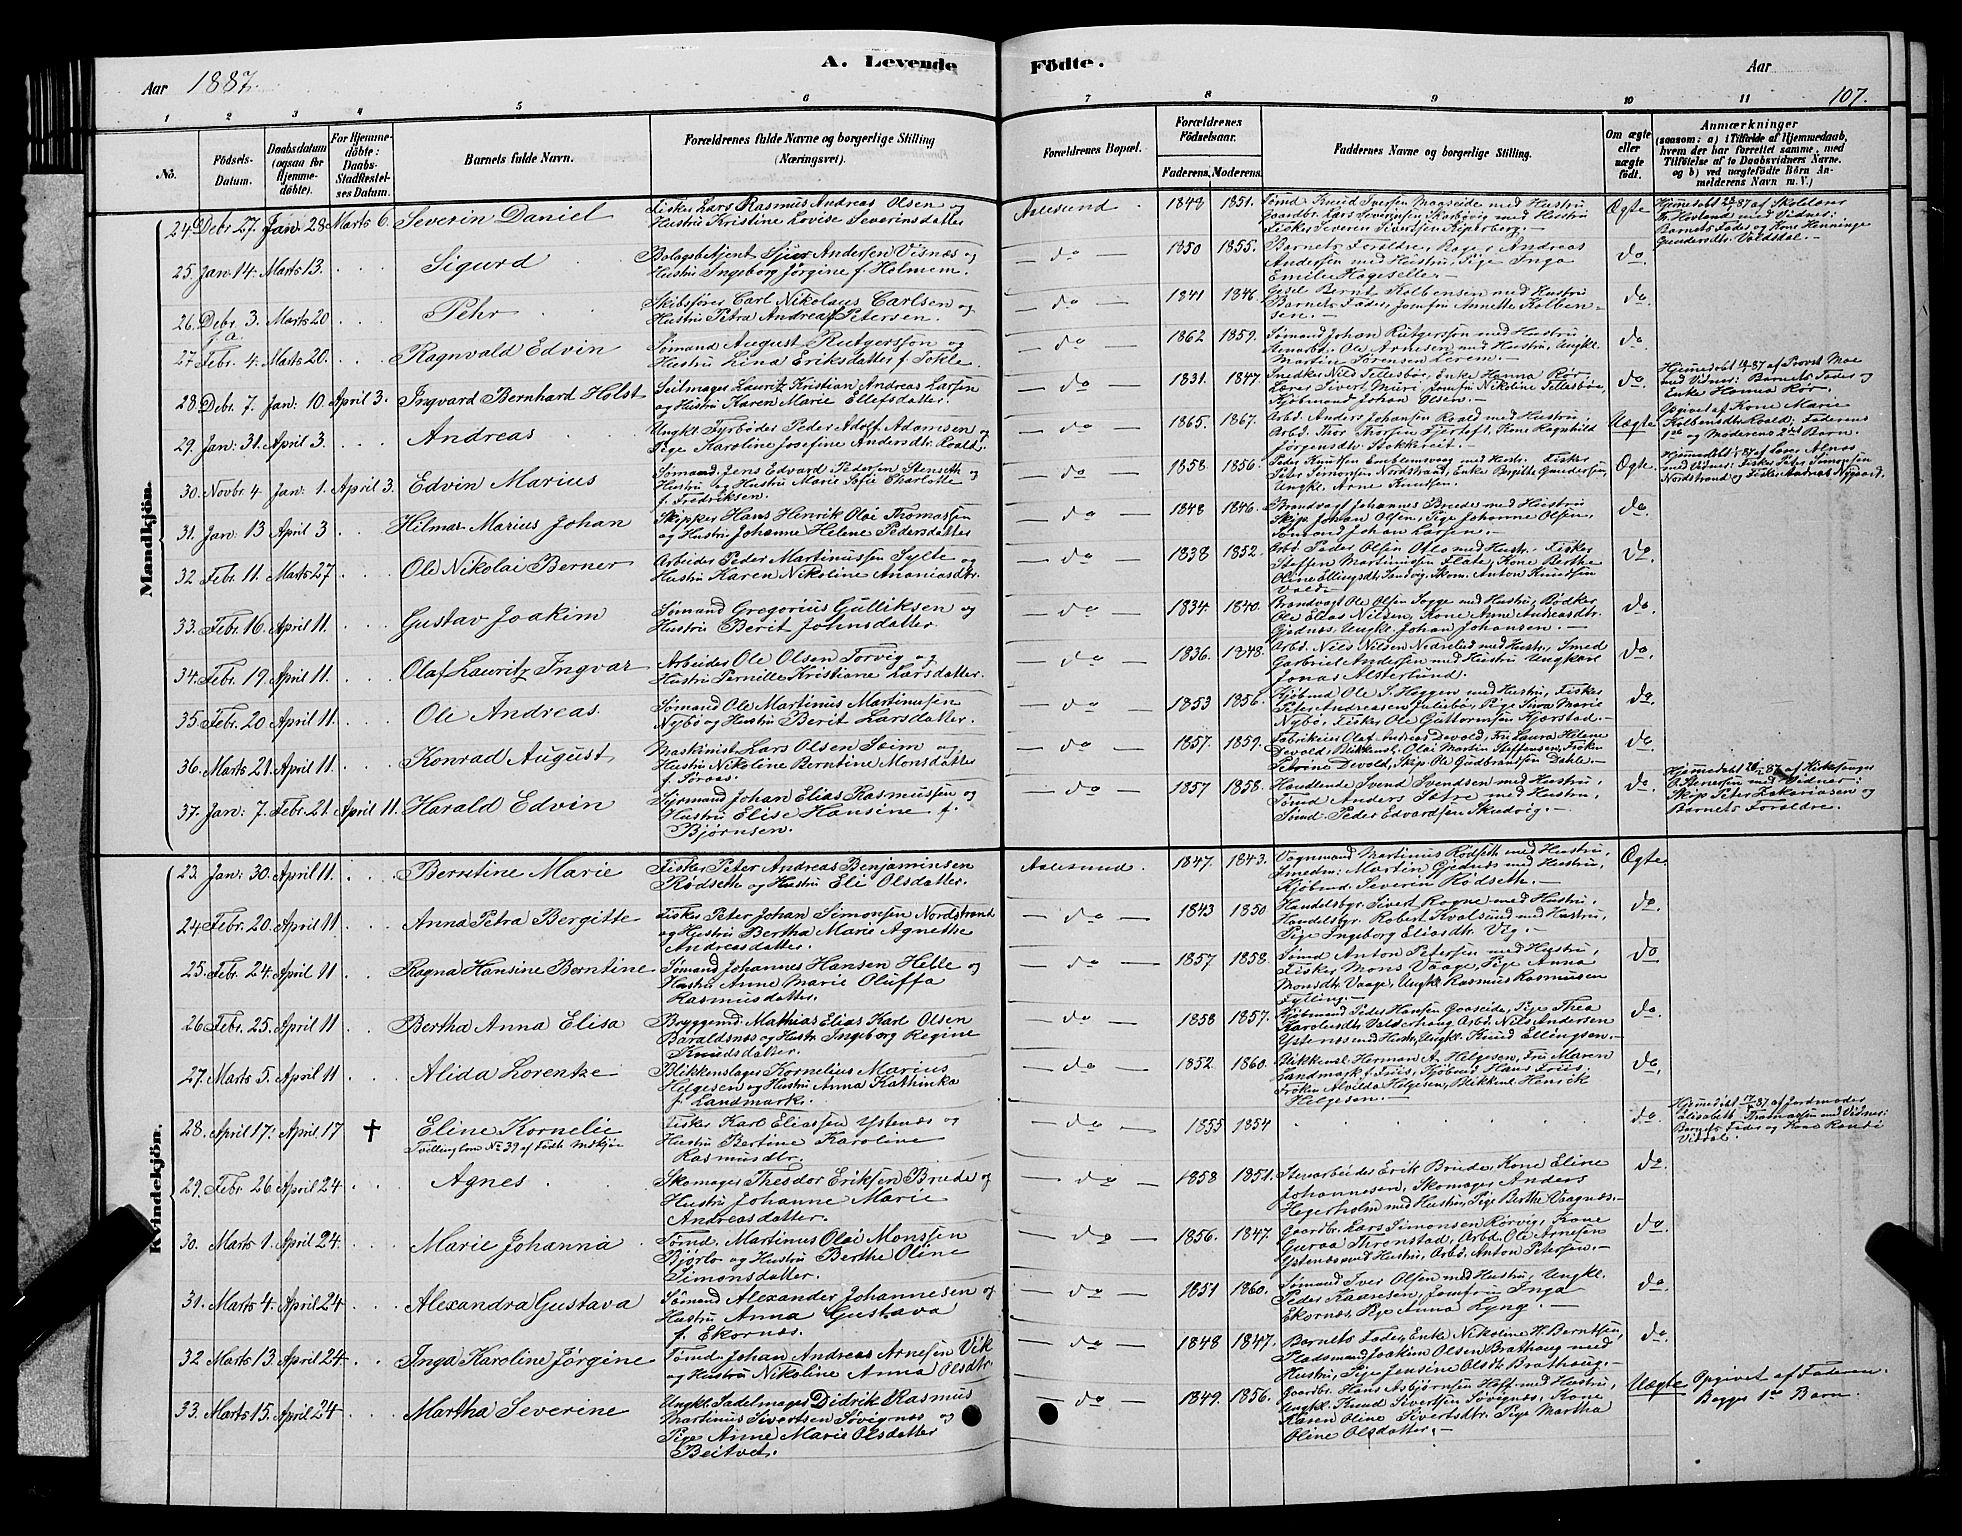 Aar 1887.
A. Levende Fødte.
Aar
107.
1 2 3 4 5 6 7 8 9 10 11
No.
Födsels-Datum.
Daabsdatum (ogsaa for Hjemme-döbte).
For Hjemme-döbte: Daabs-Stadfæstel-ses Datum.
Barnets fulde Navn.
Forældrenes fulde Navne og borgerlige Stilling (Næringsvei).
Forældrenes Bopæl.
Forældrenes Födselsaar.
Faderens. Moderens.
Faddernes Navne og borgerlige Stilling.
Om ægte eller uægte födt.
Anmærkninger (saasom: a) i Tilfælde af Hjemmedaab, hvem der har forrettet samme, med Tilföielse af to Daabsvidners Navne, og b) ved uægtefödte Börn An-melderens Navn m. V.)
Mandkjön.
24. Debr 27. Jan: 28 Marts 6. Severin Daniel
Fisker Lars Rasmus Andreas Olsen og
Hustru Kristine Lovise Severinsdatter
Aalesund. 1849 1851.
Sømd. Kneid Iversen Maaseide med Hustru
Gaardbr. Lars Severinsen Karbøvig med Hustru
Fisker Severin Sivertsen Kiperberg.
Ægte
Hjemedøbt 28/1 87 af Skoldens
Fr. Hovland med Vidner:
Barnets Fader og Kone Henninge
Gundersdtr. Voldsdal.
25. Jan: 14. Marts 13. Sigurd
Bolagsbetjent Sjur Andersen Visnæs og
Hustru Ingeborg Jörgine f. Holmem.
do 1850 1855.
Barnets Forældre, Bager Andreas
Andersen med Hustru, Pige Inga
Emilie Hageselle.
do.
26. Debr. 3. Marts 20 Pehr
Skibsfører Carl Nikolaus Carlsen og
Hustru Petra Andrea f Petersen.
do 1841 1846.
Gjest Bernt Kolbensen med Hustru
Barnets Fader, Jomfru Annette Kolben-
sen.
do.
27. Febr. 4. Marts 20. Ragnvald Edvin
Sømand August Rutgersson og
Hustru Lina Eriksdatter f. Tokle.
do 1862 1859.
Sømand Johan Rutgersson med Hustru,
Stenarb. Ole Arnesen med Hustru, Ungkl.
Martin Sörensen Lerem.
do.
28. Debr. 7. Jan: 10. April 3. Ingvard Bernhard Holst
Seilmager Lauritz Kristian Andreas Larsen
og Hustru Karen Marie Ellefsdatter.
do 1831. 1847
Snedker Nils Tillesbø, Enke Hanna Rör,
Lærer Sivert Mürr, Jomfru Nikoline Tillesbø,
Kjøbmand Johan Olsen.
do.
Hjemedøbt 10/1 87 af Provst Moe
med Vidner: Barnets Fader og
Enke Hanna Rör.
29. Jan: 31. April 3. Andreas
Ungkl. Fyrbøder Peder Adolf Adamsen og
Pige Karoline Josefine Andersdtr. Roald.
do 1865. 1867.
Arbd. Anders Johansen Roald med Hustru,
Arbd. Thor Thorsen Fjertoft, Kone Ragnhild
Jörgensdtr. Stokkereit.
Uægte
Opgivet af Kone Marie
Kolbensdtr. Roald, Faderens
1ste og Moderens 2det Barn.
30. Novbr 4. Jan: 1. April 3. Edvin Marius
Sømand Jens Edvard Pedersen Stenseth og
Hustru Marie Sofie Charlotte
f. Fredriksen.
do 1858. 1856.
Peder Knudsen Emblemsvaag med Hustr. Fisker
Peter Simonsen Nordstrand, Enke Birgitte Gundersen,
Ungkl. Arne Knutsen.
Ægte.
Hjemmedøbt 1/1 87 af Lærer Alnæs
med Vidner: Fisker Peter Simonsen
Nordstrand og Fisker Andreas Nygaard.
31. Jan: 13 April 3 Hilmar Marius Johan
Skipper Hans Henrik Olai Thomassen
og Hustru Johanne Helene Pedersdatter
do 1848 1846.
Brandvagt Johannes Brude med Hustru
Skip. Johan Olsen, Pige Johanne Olsen,
Sømand Johan Larsen.
do.
32 Febr. 11. Marts 27 Ole Nikolai Berner
Arbeider Peder Martinussen Sylte og
Hustru Karen Nikoline Ananiasdtr.
do 1838 1852.
Arbd. Peder Olsen Otlo med Hustr. Fisker
Steffen Martinussen Flate, Kone Berthe
Oline Ellingsdtr. Sandvig, Skom. Anton Knudsen
Vold.
do
33. Febr. 16. April 11. Gustav Joakim
Sømand Gregorius Gulliksen og
Hustru Berit Johnsdatter.
do 1834 1840.
Brandvagt Ole Olsen Sogge med Hustru, Bødker
Ole Elias Nilsen, Kone Anne Andreasdtr.
Gjødnes, Ungkl. Johan Johansen.
do.
34. Febr. 19. April 11. Olaf Lauritz Ingvar
Arbeider Ole Olsen Torvig og
Hustru Pernille Kristiane Larsdatter.
do 1836. 1848.
Arbd. Nils Nilsen Nedrelid med Hustr, Smed
Garbriel Andersen med Hustru, Ungkarl
Jonas Alsterlund.
do.
35. Febr. 20 April 11. Ole Andreas
Sømand Ole Martinus Martinusen
Nybø og Hustru Berit Larsdatter.
do 1853 1856.
Kjøbmd Ole S. Heggen med Hustru, Fisker
Peter Andreasen Julebø, Pige Sivra Marie
Nybø, Fisker Ole Guttormsen Kjærstad.
do
36. Marts 21. April 11. Konrad August
Maskinist Lars Olsen Soim og
Hustru Nikoline Berntine Monsdatter
f. Soraas.
do 1857. 1859.
Fabrikeier Olaf Andreas Devold, Fru Laura Helene
Devold, Blikkensl. Olai Martin Steffensen, Frøken
Petrine Devold, Skip. Ole Gudbrandsen Dahle.
do
37. Jan: 7. Febr. 21. April 11. Harald Edvin
Styrmand Johan Elias Rasmussen og
Hustru Elise Hansine f.
Bjørnsen.
do 1857 1858.
Handlende Svend Svendsen med Hustru,
Sømd Anders Sætre med Hustru,
Sømd Peder Edvardsen Skudvig.
do.
Hjemedøbt 21/2 87 af Kirkesanger
O. Stenersen med Vidner:
Skip. Peter Zakariasen og
Barnets Forældre.
Kvindekjön.
23. Jan: 30. April 11. Berntine Marie
Fisker Peter Andreas Benjaminsen
Rødseth og Hustru Eli Olsdatter.
Aalesund. 1847. 1843.
Vognmand Martinus Rödseth med Hustru,
Smedm: Martin Gjødnes med Hustru,
Kjøbmd. Severin Rödseth.
Ægte.
24. Febr. 20. April 11 Anna Petra Bergitte
Fisker Peter Johan Simonsen Nordstrand
og Hustru Bertha Marie Agnethe
Andreasdatter.
do 1843 1850
Handelsbgr. Sivert Rogne med Hustru,
Handelsbgr. Robert Kvalsund med Hustru,
Pige Ingeborg Eliasdtr. Vig.
do.
25. Febr. 24. April 11 Ragna Hansine Berntine
Sømand Johannes Hansen Helle og
Hustru Anne Marie Oluffa
Rasmusdatter.
do 1857 1858.
Sømd Anton Petersen med Hustru,
Fisker Mons Vaage, Pige Anna
Monsdtr. Vaage, Ungkl. Rasmus Rasmusen
Fylling.
do
26 Febr. 25. April 11 Bertha Anna Elisa
Bryggemd. Mathias Elias Karl Olsen
Baraldsnes og Hustr. Ingeborg Regine
Knudsdatter.
do 1858 1857.
Kjøbmd Peder Hansen Gaaseide, Pige Thea
Karolusdtr. Valderhaug Arbd. Nils Andersen
Ystenæs med Hustr, Ungkl. Knud Ellingsen.
do.
27. Marts 5. April 11 Alida Lorentze
Blikkenslager Kornelius Marius
Helgesen og Hustru Anna Kathinka
f. Landmark.
do 1852. 1860.
Blikkensl. Herman A. Helgesen, Fru Maren
Landmark f. Friis, Kjøbmd. Hans Friis,
Frøken Alvilda Helgesen, Blikkensl. Henrik
Helgesen.
do,
28. April 17: April 17 † Eline Kornelie
Tvillingbrn No 39 af Fødte Mdkjøn
Fisker Karl Eliassen Ystenæs og
Hustru Bertine Karoline
Rasmusdtr.
do 1855 1854
do
Hjemedøbt 17/4 87 af Jordmoder
Elisabeth Thomassen med Vidner:
Barnets Fader og Kone Randi
Vikdal.
29. Febr 26 April 24 Agnes
Skomager Theodor Eriksen Brude og
Hustru Johanne Marie
Andreasdatter.
do 1858 1851.
Stenarbeider Erik Brude, Kone Eline
Johannesen, Skomager Anders
Hegerholm med Hustru, Pige Berthe Vaagnæs.
do.
30. Marts 1. April 24. Marie Johanna
Sømd. Martinus Olai Monssen
Bjørlo og Hustru Berthe Oline
Simonsdatter.
do 1856. 1847.
Gaardbr. Lars Simonsen Rørvig, Kone
Guraa Thronstad, Arbd. Ole Arnesen
Ystenæs med Hustru, Arbd. Anton Petersen.
do
31. Marts 4. April 24 Alexandra Gustava
Sømand Alexander Johannesen og
Hustru Anna Gustava
f. Ekornæs.
do 1851 1860.
Sømand Iver Olsen med Hustru, Ungkl.
Peder Kaaresen, Jomfru Inga
Ekornæs, Pige Anna Lyng.
do
32 Marts 13. April 24 Inga Karoline Jørgine
Tømd. Johan Andreas Arnesen Vik
og Hustru Nikoline Anna Olsdtr
do 1848 1847.
Barnets Fader, Enke Nikoline H. Berntsen,
Pladsmand Joakim Olsen Brathaug med
Hustru, Pige Jensine Olsdtr. Brathaug.
do.
33. Marts 15. April 24 Martha Severine
Ungkl. Sadelmager Didrik Rasmus
Martinus Sivertsen Søvignæs og
Pige Anne Marie Olsdatter
Beitvet.
do 1849. 1856.
Gaardbr. Hans Asbjørnsen Hoff med Hustru,
Ungkl. Knud Sivertsen Søvignes, Kone
Karen Oline Sivertsdtr. Pige Martha
Oline Olsdatter.
Uægte
Opgivet af Faderen.
Begges 1ste Barn.